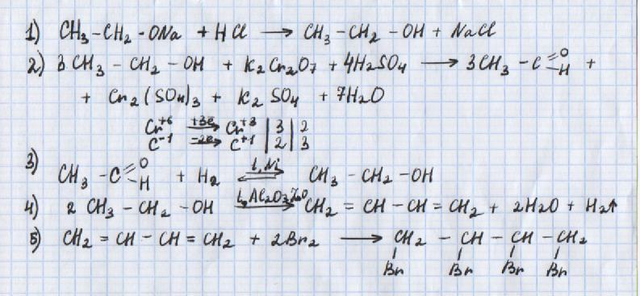 1) CH₃-CH₂-ONa + HCl → CH₃-CH₂-OH + NaCl
2) 3CH₃-CH₂-OH + K₂Cr₂O₇ + 4H₂SO₄ → 3CH₃-C=O-H +
+ Cr₂(SO₄)₃ + K₂SO₄ + 7H₂O
Cr⁺⁶ +3e→ Cr⁺³ | 3 | 2
C⁻¹ -2e→ C⁺¹ | 2 | 3
3) CH₃-C=O-H + H₂ t, Ni ⇌ CH₃-CH₂-OH
4) 2CH₃-CH₂-OH t, Al₂O₃, ZnO → CH₂=CH-CH=CH₂ + 2H₂O + H₂↑
5) CH₂=CH-CH=CH₂ + 2Br₂ → CH₂-CH-CH-CH₂
Br Br Br Br